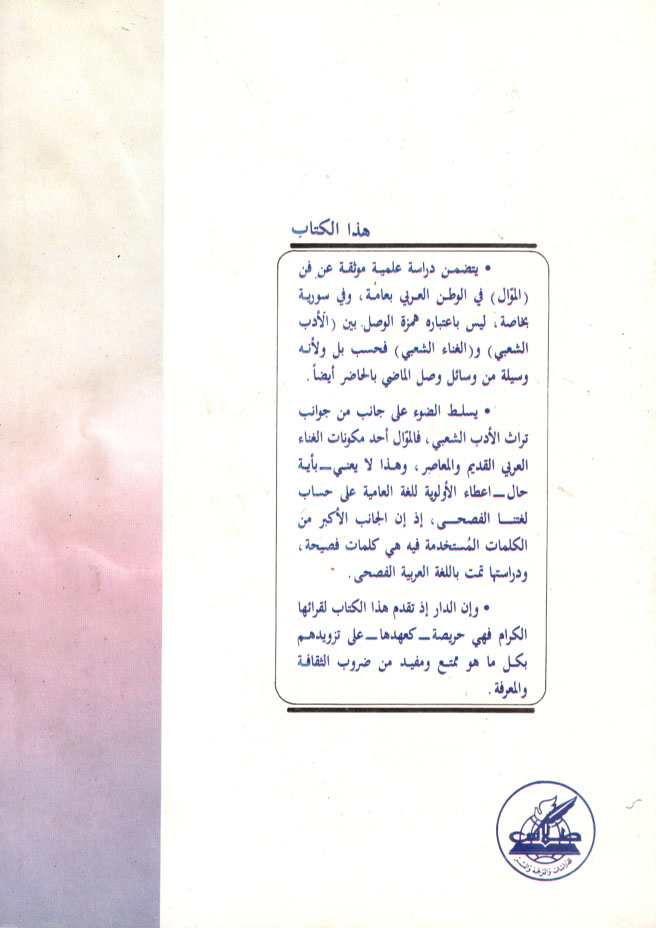 هذا الكتاب
• يتضمن دراسة علمية موثقة عن فن
(الموّال) في الوطن العربي بعامّة، وفي سورية
بخاصة، ليس باعتباره همزة الوصل بين (الأدب
الشعبي) و(الغناء الشعبي) فحسب بل ولأنه
وسيلة من وسائل وصل الماضي بالحاضر أيضاً.
• يسلط الضوء على جانب من جوانب
تراث الأدب الشعبي، فالموّال أحد مكونات الغناء
العربي القديم والمعاصر، وهذا لا يعني ــ بأية
حال ــ اعطاء الأولوية للغة العامية على حساب
لغتنا الفصحى، إذ إن الجانب الأكبر من
الكلمات المُستخدمة فيه هي كلمات فصيحة،
ودراستها تمت باللغة العربية الفصحى.
• وإن الدار إذ تقدم هذا الكتاب لقرائها
الكرام فهي حريصة ــ كعهدها ــ على تزويدهم
بكل ما هو ممتع ومفيد من ضروب الثقافة
والمعرفة.
طلاس
للدراسات والترجمة والنشر